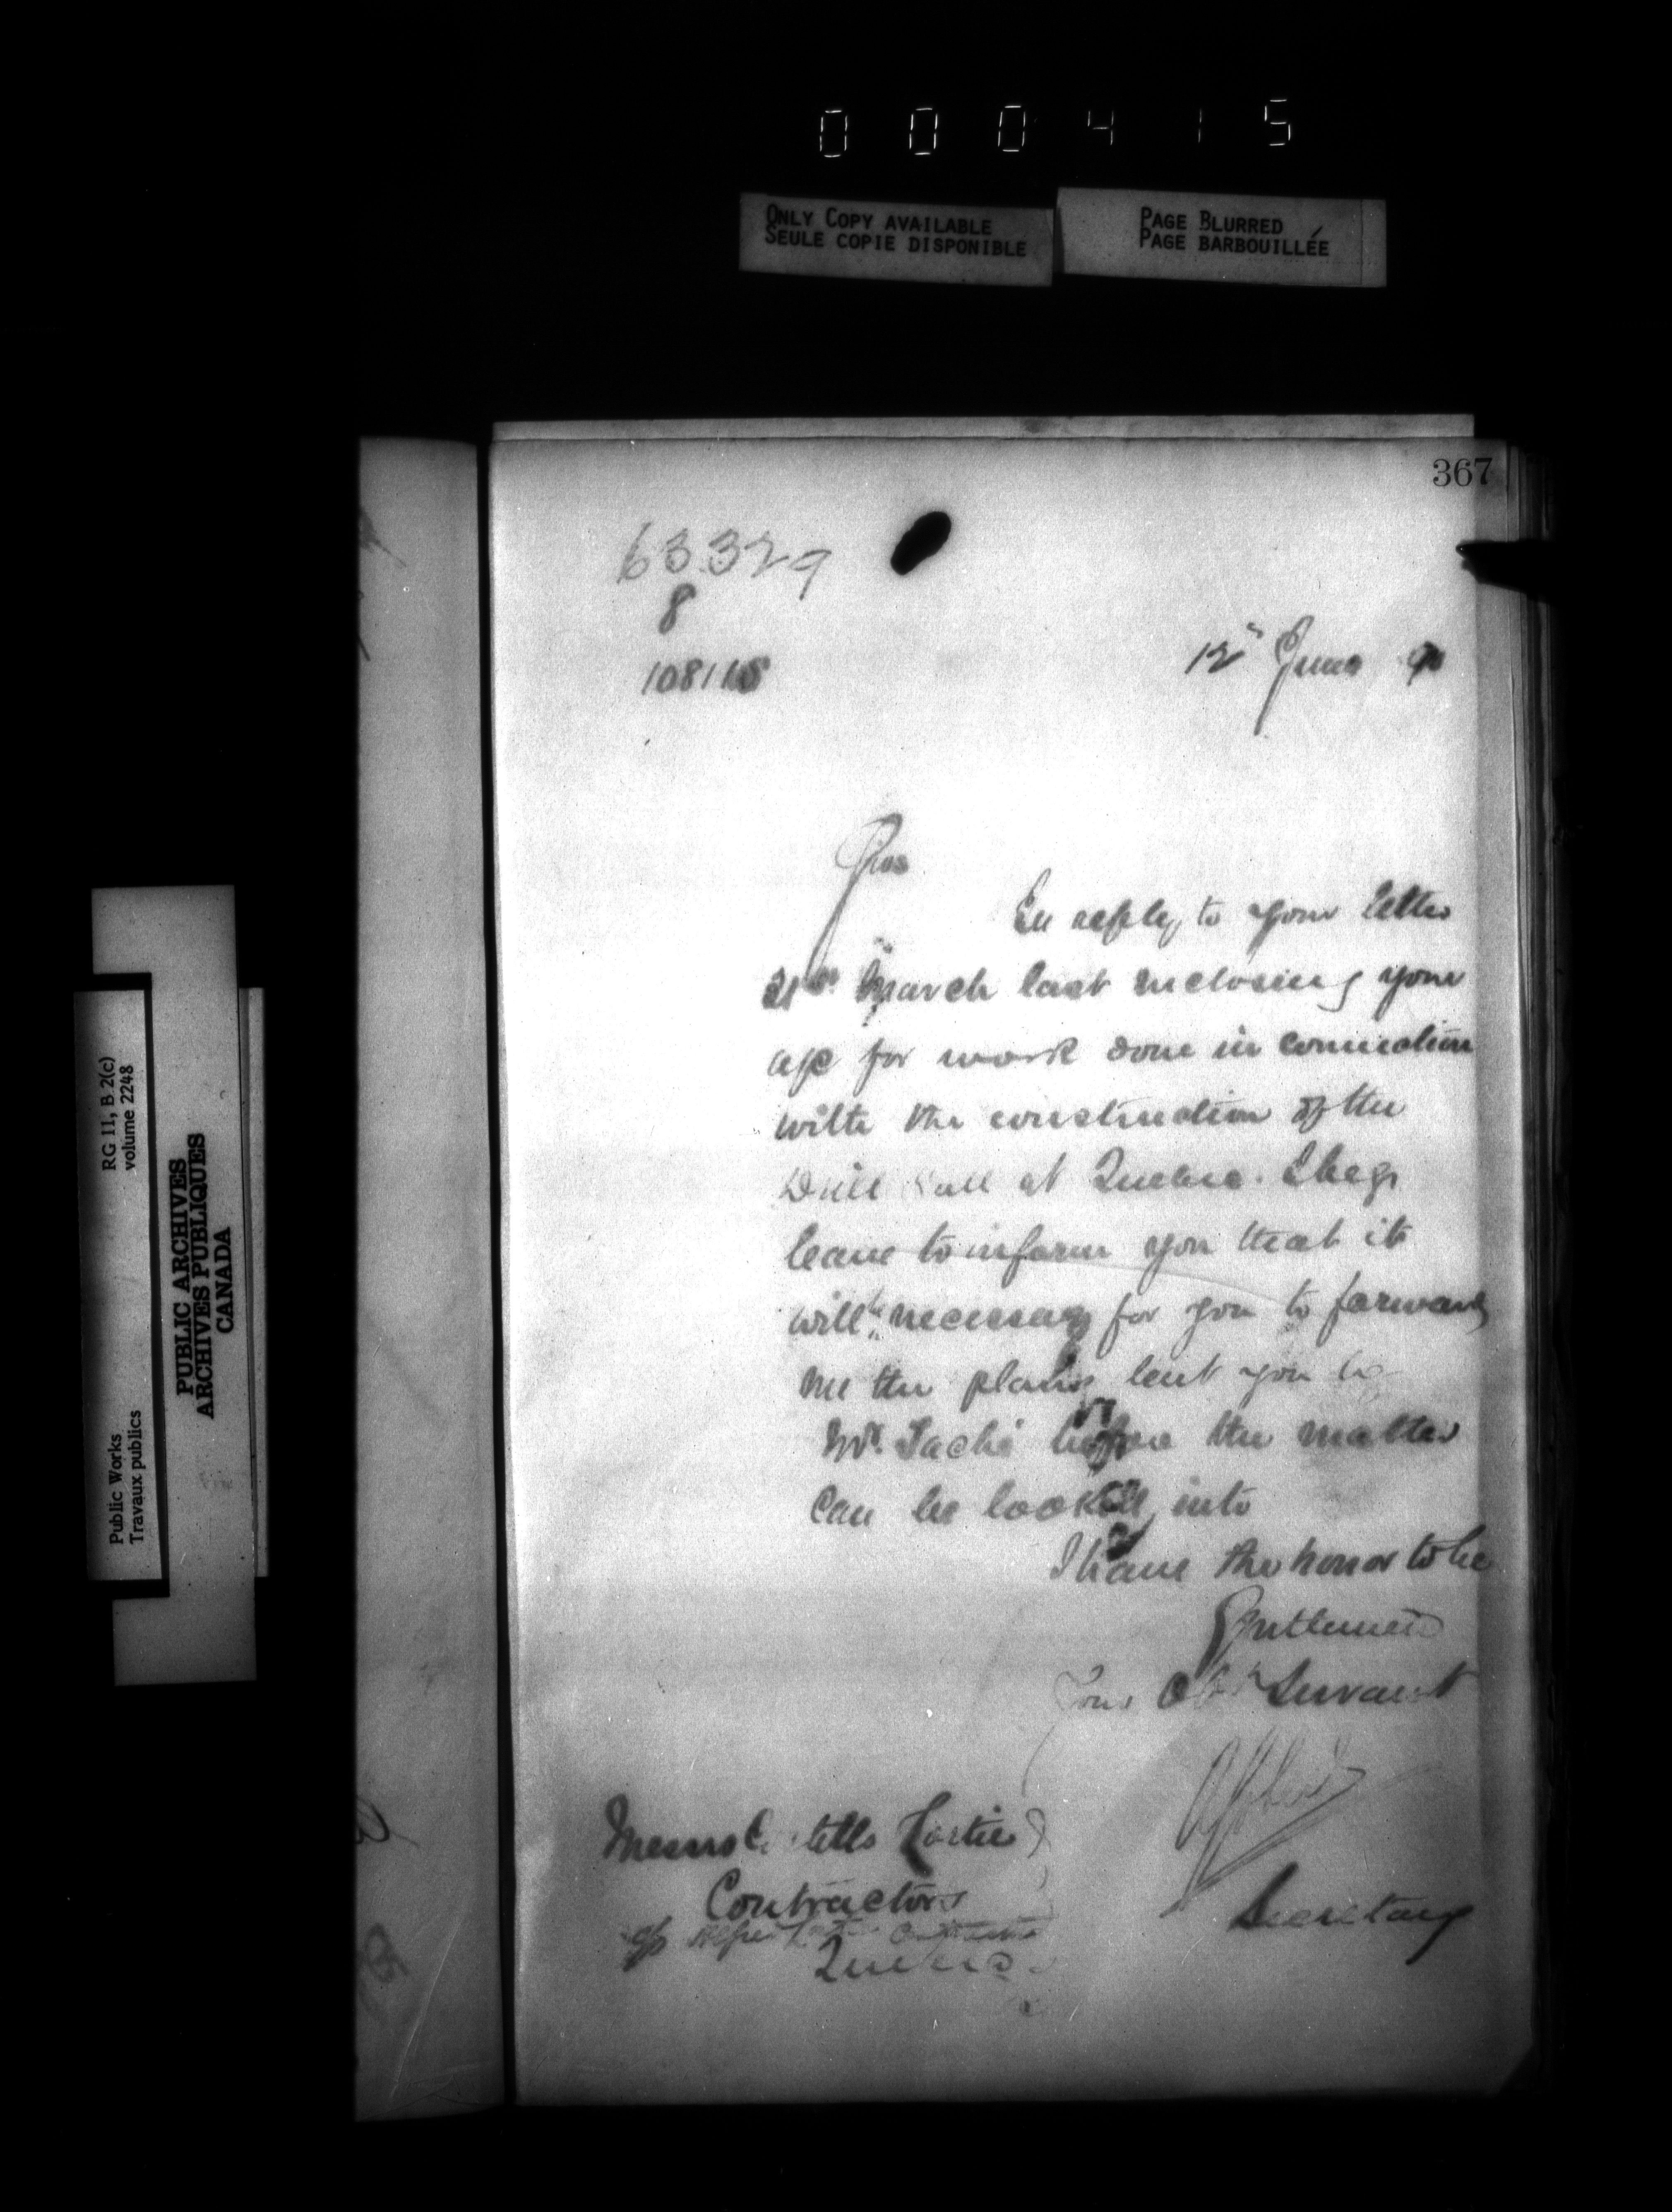 000415
ONLY COPY AVAILABLE
SEULE COPIE DISPONIBLE
PAGE BLURRED
PAGE BARBOUILLÉE
367
63329
8
108115
12" June 90
In reply to your letter
21st March last inclosing your
a/c for work done in connection
with the construction of the
Drill at Quebec. I beg
leave to inform you that it
will be necessary for you to forward
me the plans lent you
Mr. Taché before the matter
can be looked into
I have the honor to be
Gentlemen
Your Obt Servant
Messrs Fortier
Contractors
Quebec
Secretary
RG 11, B 2(c)
volume 2248
Public Works
Travaux publics
PUBLIC ARCHIVES
ARCHIVES PUBLIQUES
CANADA